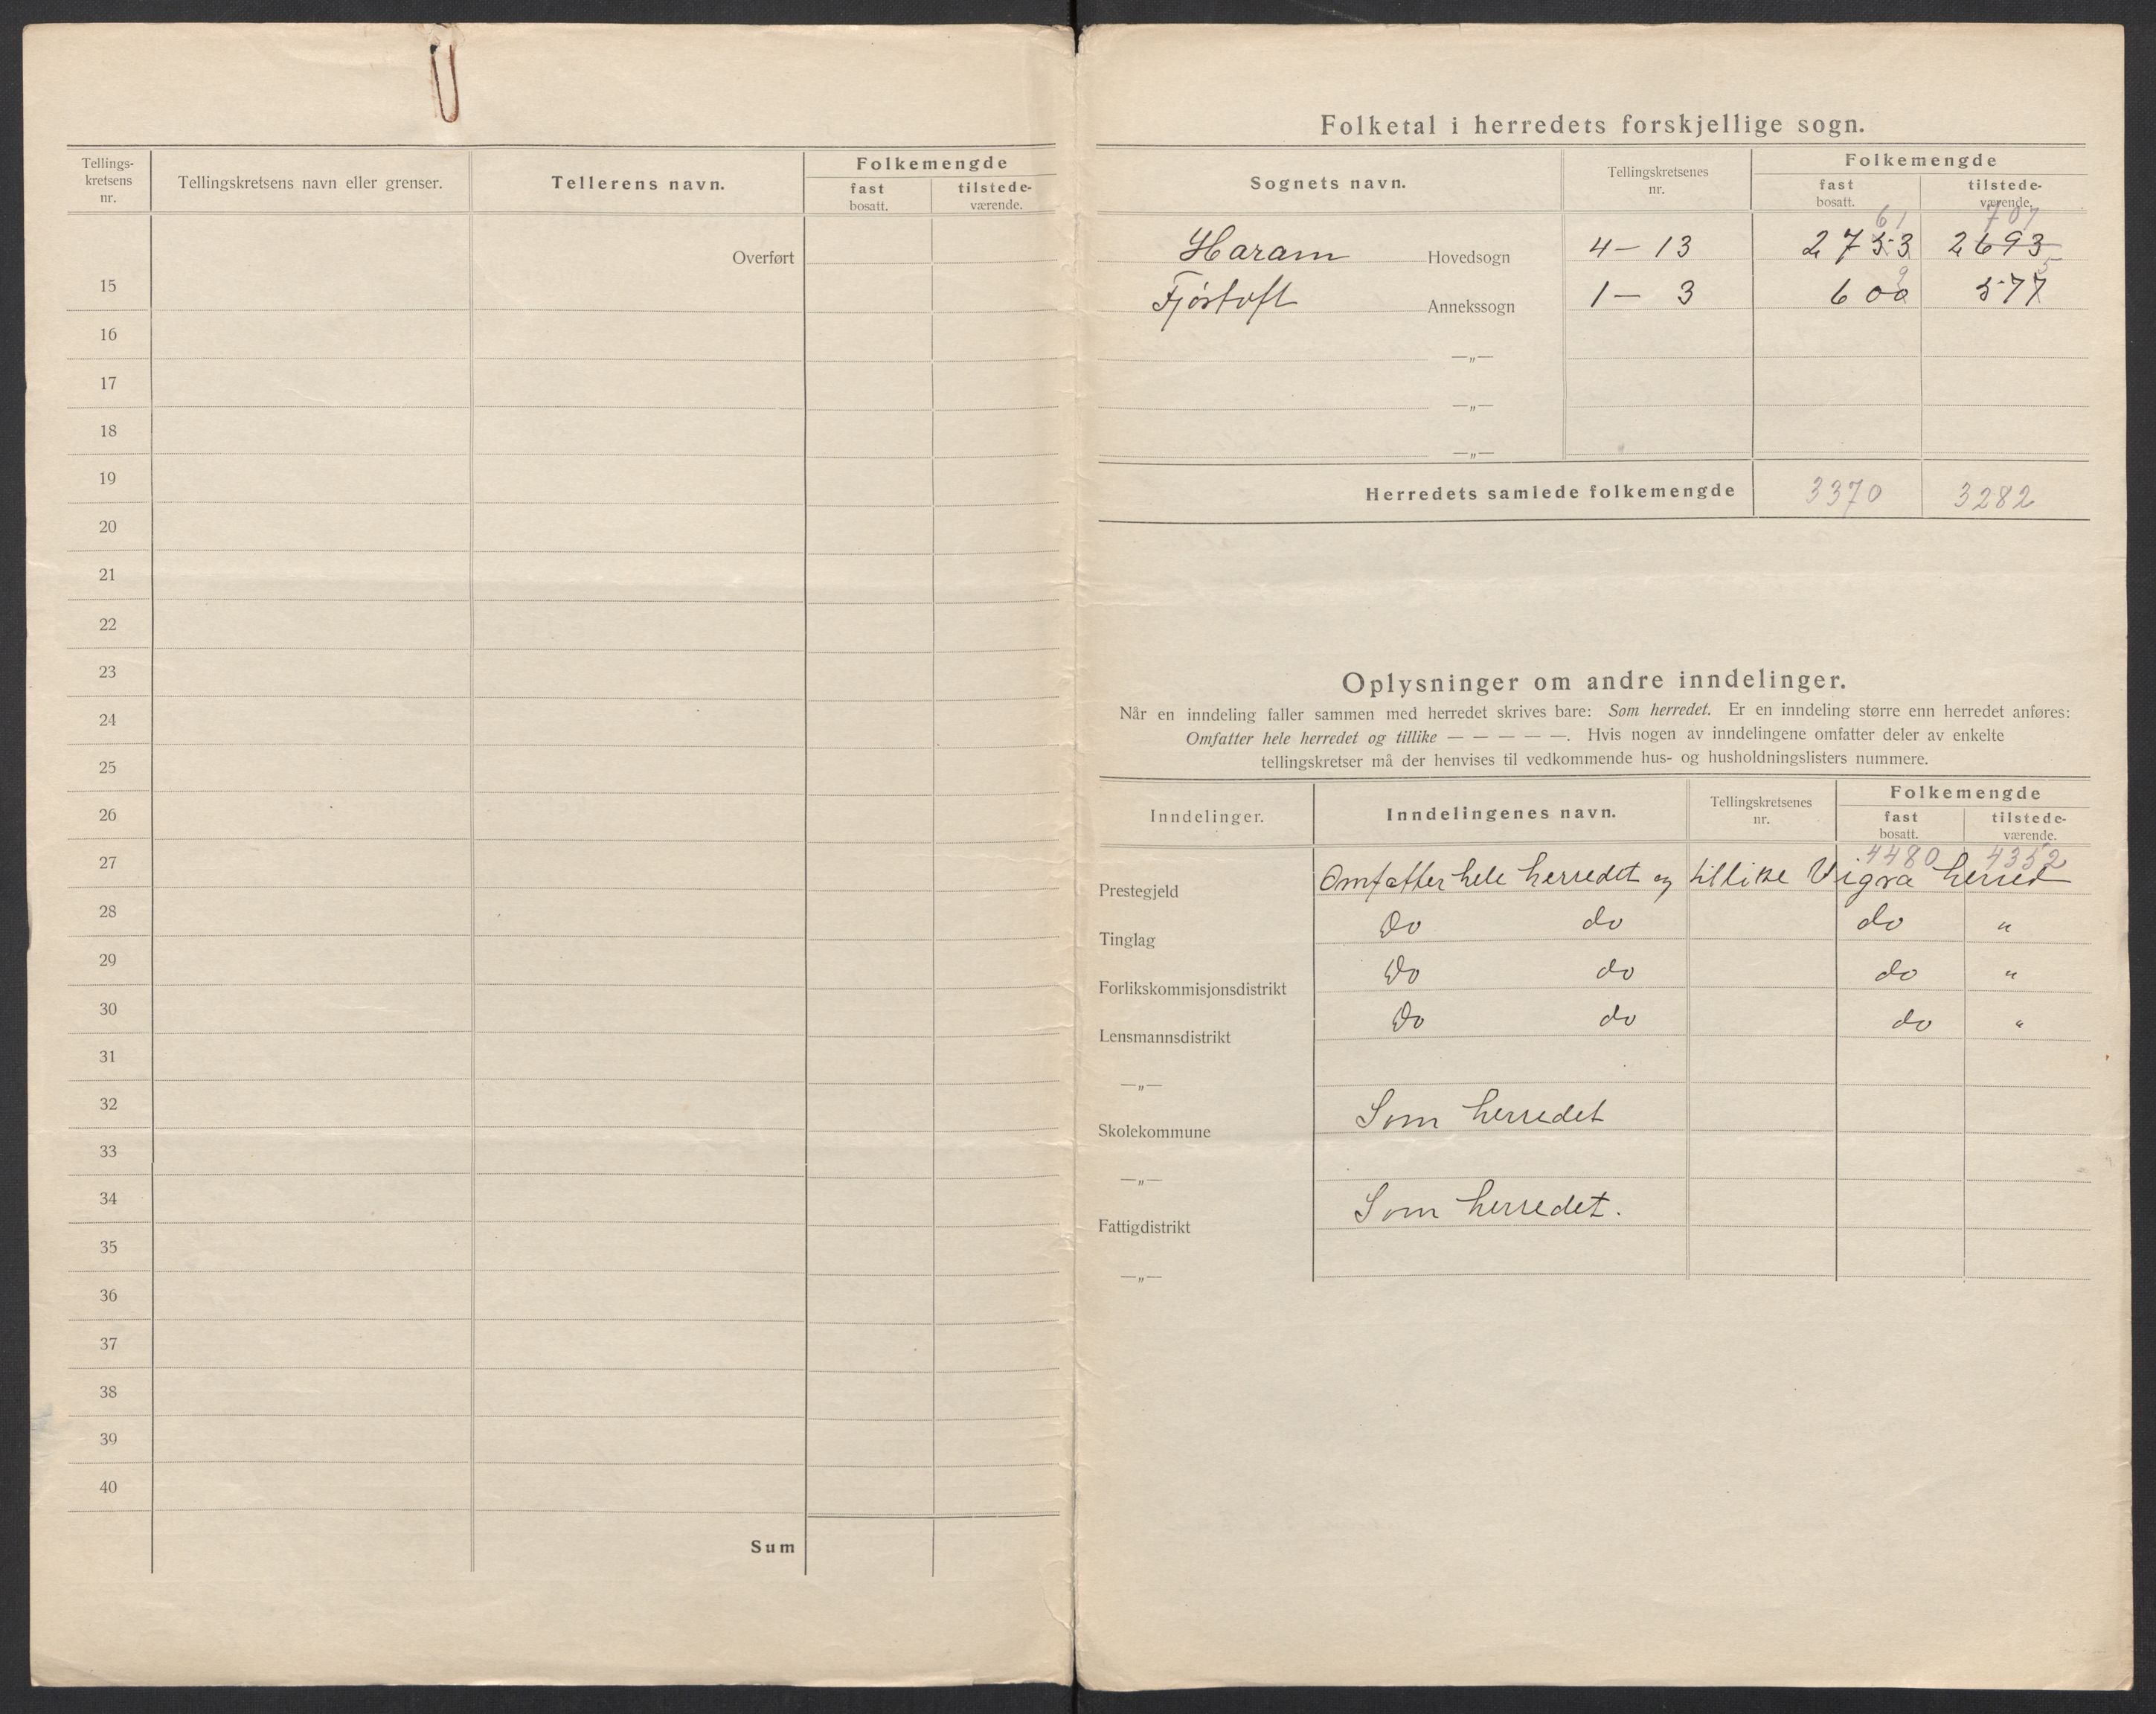 Tellings-
kretsens
nr.
Tellingskretsens navn eller grenser.
Tellerens navn.
Folkemengde
fast
bosatt.
tilstede-
værende.
Overført
15
16
17
18
19
20
21
22
23
24
25
26
27
28
29
30
31
32
33
34
35
36
37
38
39
40
Sum
Folketal i herredets forskjellige sogn.
Sognets navn.
Tellingskretsenes
nr.
Folkemengde
fast
bosatt.
tilstede-
værende.
61 707
Haram Hovedsogn 4 — 13 2753 2693
9 5
Fjørtoft Annekssogn 1 — 3 600 577
—„—
—„—
—„—
Herredets samlede folkemengde 3370 3282
Oplysninger om andre inndelinger.
Når en inndeling faller sammen med herredet skrives bare: Som herredet. Er en inndeling større enn herredet anføres:
Omfatter hele herredet og tillike — — — — —. Hvis nogen av inndelingene omfatter deler av enkelte
tellingskretser må der henvises til vedkommende hus- og husholdningslisters nummere.
Inndelinger.
Inndelingenes navn.
Tellingskretsenes
nr.
Folkemengde
fast
bosatt.
tilstede-
værende.
4480 4352
Prestegjeld Omfatter hele herredet og tillike Vigra herred
Tinglag Do do do "
Forlikskommisjonsdistrikt Do do do "
Lensmannsdistrikt Do do do "
—„—
Skolekommune Som herredet
—„—
Fattigdistrikt Som herredet.
—„—